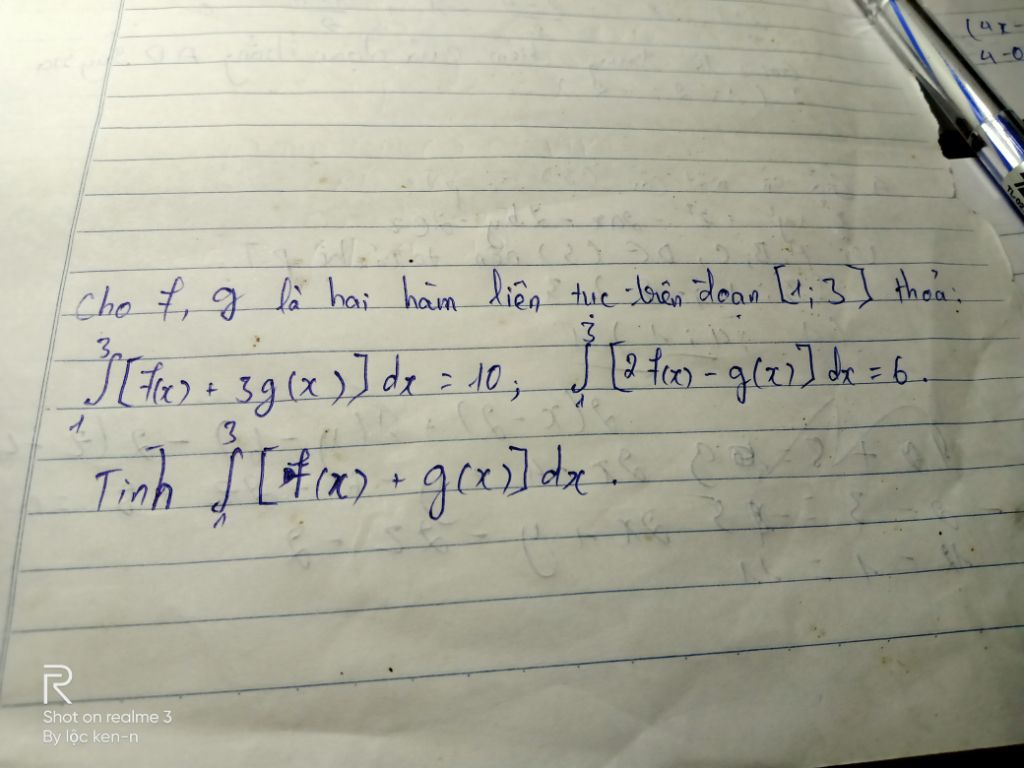 (4x-
4-0
Cho f, g là hai hàm liên tục trên đoạn [1; 3] thỏa:
∫₁³ [f(x) + 3g(x)] dx = 10; ∫₁³ [2f(x) - g(x)] dx = 6.
Tính ∫₁³ [f(x) + g(x)] dx.
R
Shot on realme 3
By lộc ken-n